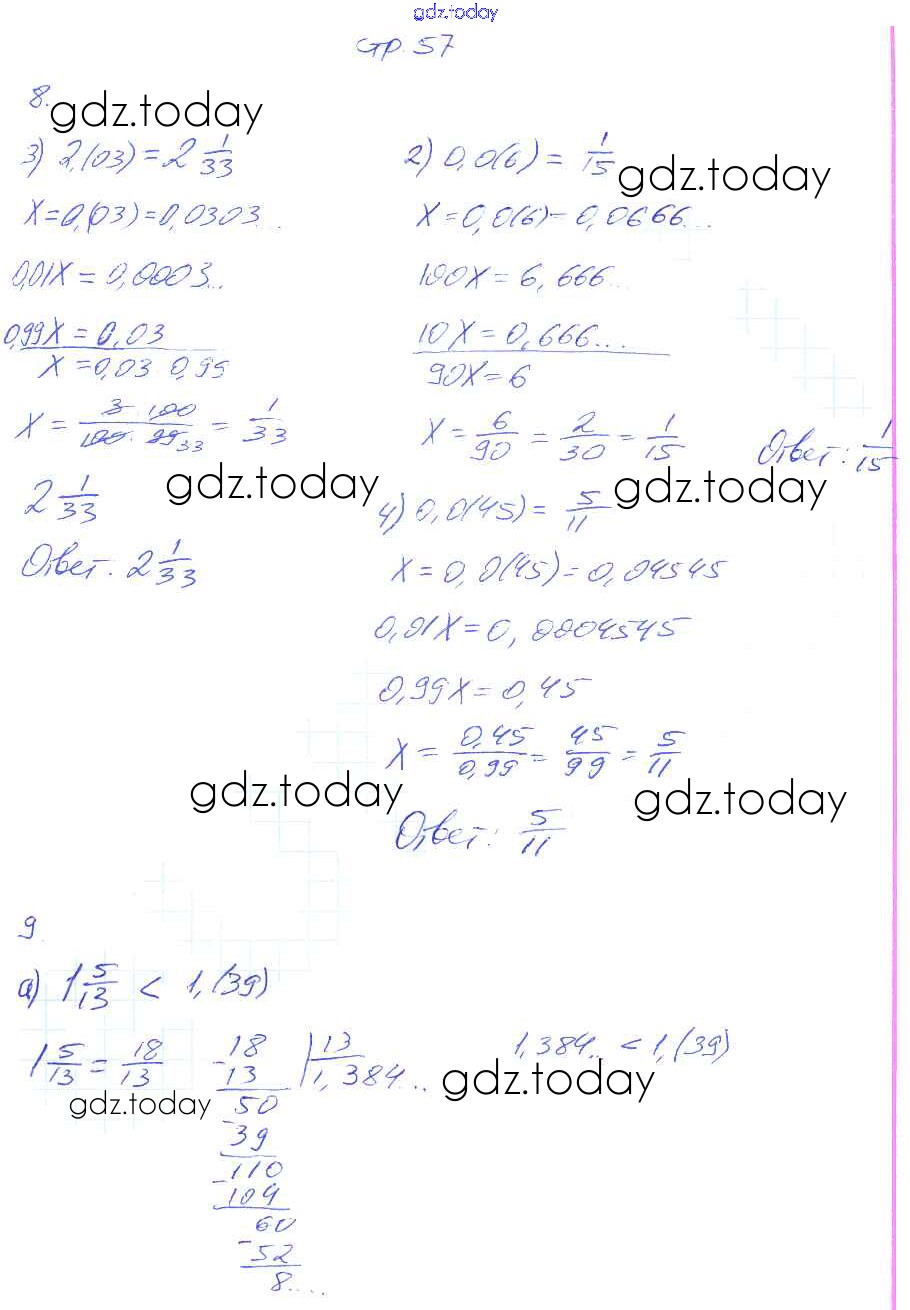 gdz.today
стр. 57
8.
gdz.today
3) 2,(03) = 2 1/33
X = 0,(03) = 0,0303...
0,01X = 0,0003...
0,99X = 0,03
X = 0,03 : 0,99
X = 3 · 100 / 100 · 99 33 = 1/33
2 1/33
gdz.today
Ответ: 2 1/33
2) 0,0(6) = 1/15
gdz.today
X = 0,0(6) = 0,0666...
100X = 6,666...
10X = 0,666...
90X = 6
X = 6/90 = 2/30 = 1/15
Ответ: 1/15
gdz.today
4) 0,0(45) = 5/11
X = 0,0(45) = 0,04545
0,01X = 0,0004545
0,99X = 0,45
X = 0,45/0,99 = 45/99 = 5/11
gdz.today
gdz.today
Ответ: 5/11
9.
а) 1 5/13 < 1,(39)
1 5/13 = 18/13
18 | 13
- 13 | 1,384...
50
- 39
110
- 104
60
- 52
8....
1,384.. < 1,(39)
gdz.today
gdz.today